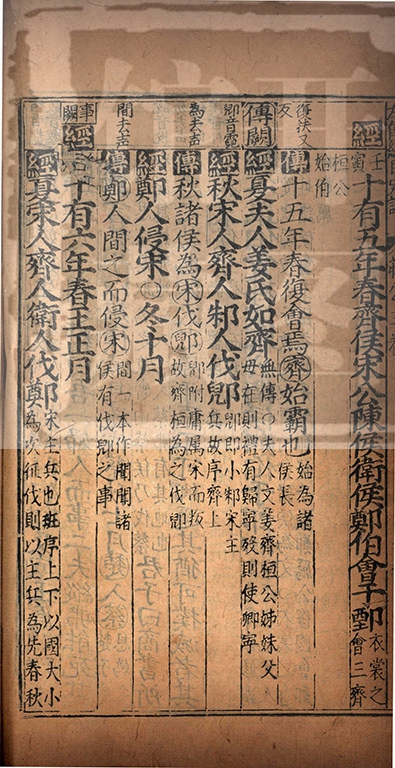 經 壬寅 十有五年春齊侯宋公陳侯衛侯鄭伯會于鄄 衣裳之會三齊
桓公始伯
復扶又反 傳 十五年春復會焉齊始霸也 始為諸侯長
傳闕 經 夏夫人姜氏如齊 無傳○夫人文姜齊桓公姊妹父母在則禮有歸寧歿則使卿寧
郳音霓 經 秋宋人齊人邾人伐郳 郳即小邾宋主兵故序齊上
為去声 傳 秋諸侯為宋伐郳 郳附庸屬宋而叛故齊桓為之伐郳
經 鄭人侵宋○冬十月
間去声 傳 鄭人間之而侵宋 間一本作聞聞諸侯有伐郳之事
事闕 經 十有六年春王正月
經 夏宋人齊人衛人伐鄭 宋主兵也班序上下以國大小為次征伐則以主兵為先春秋